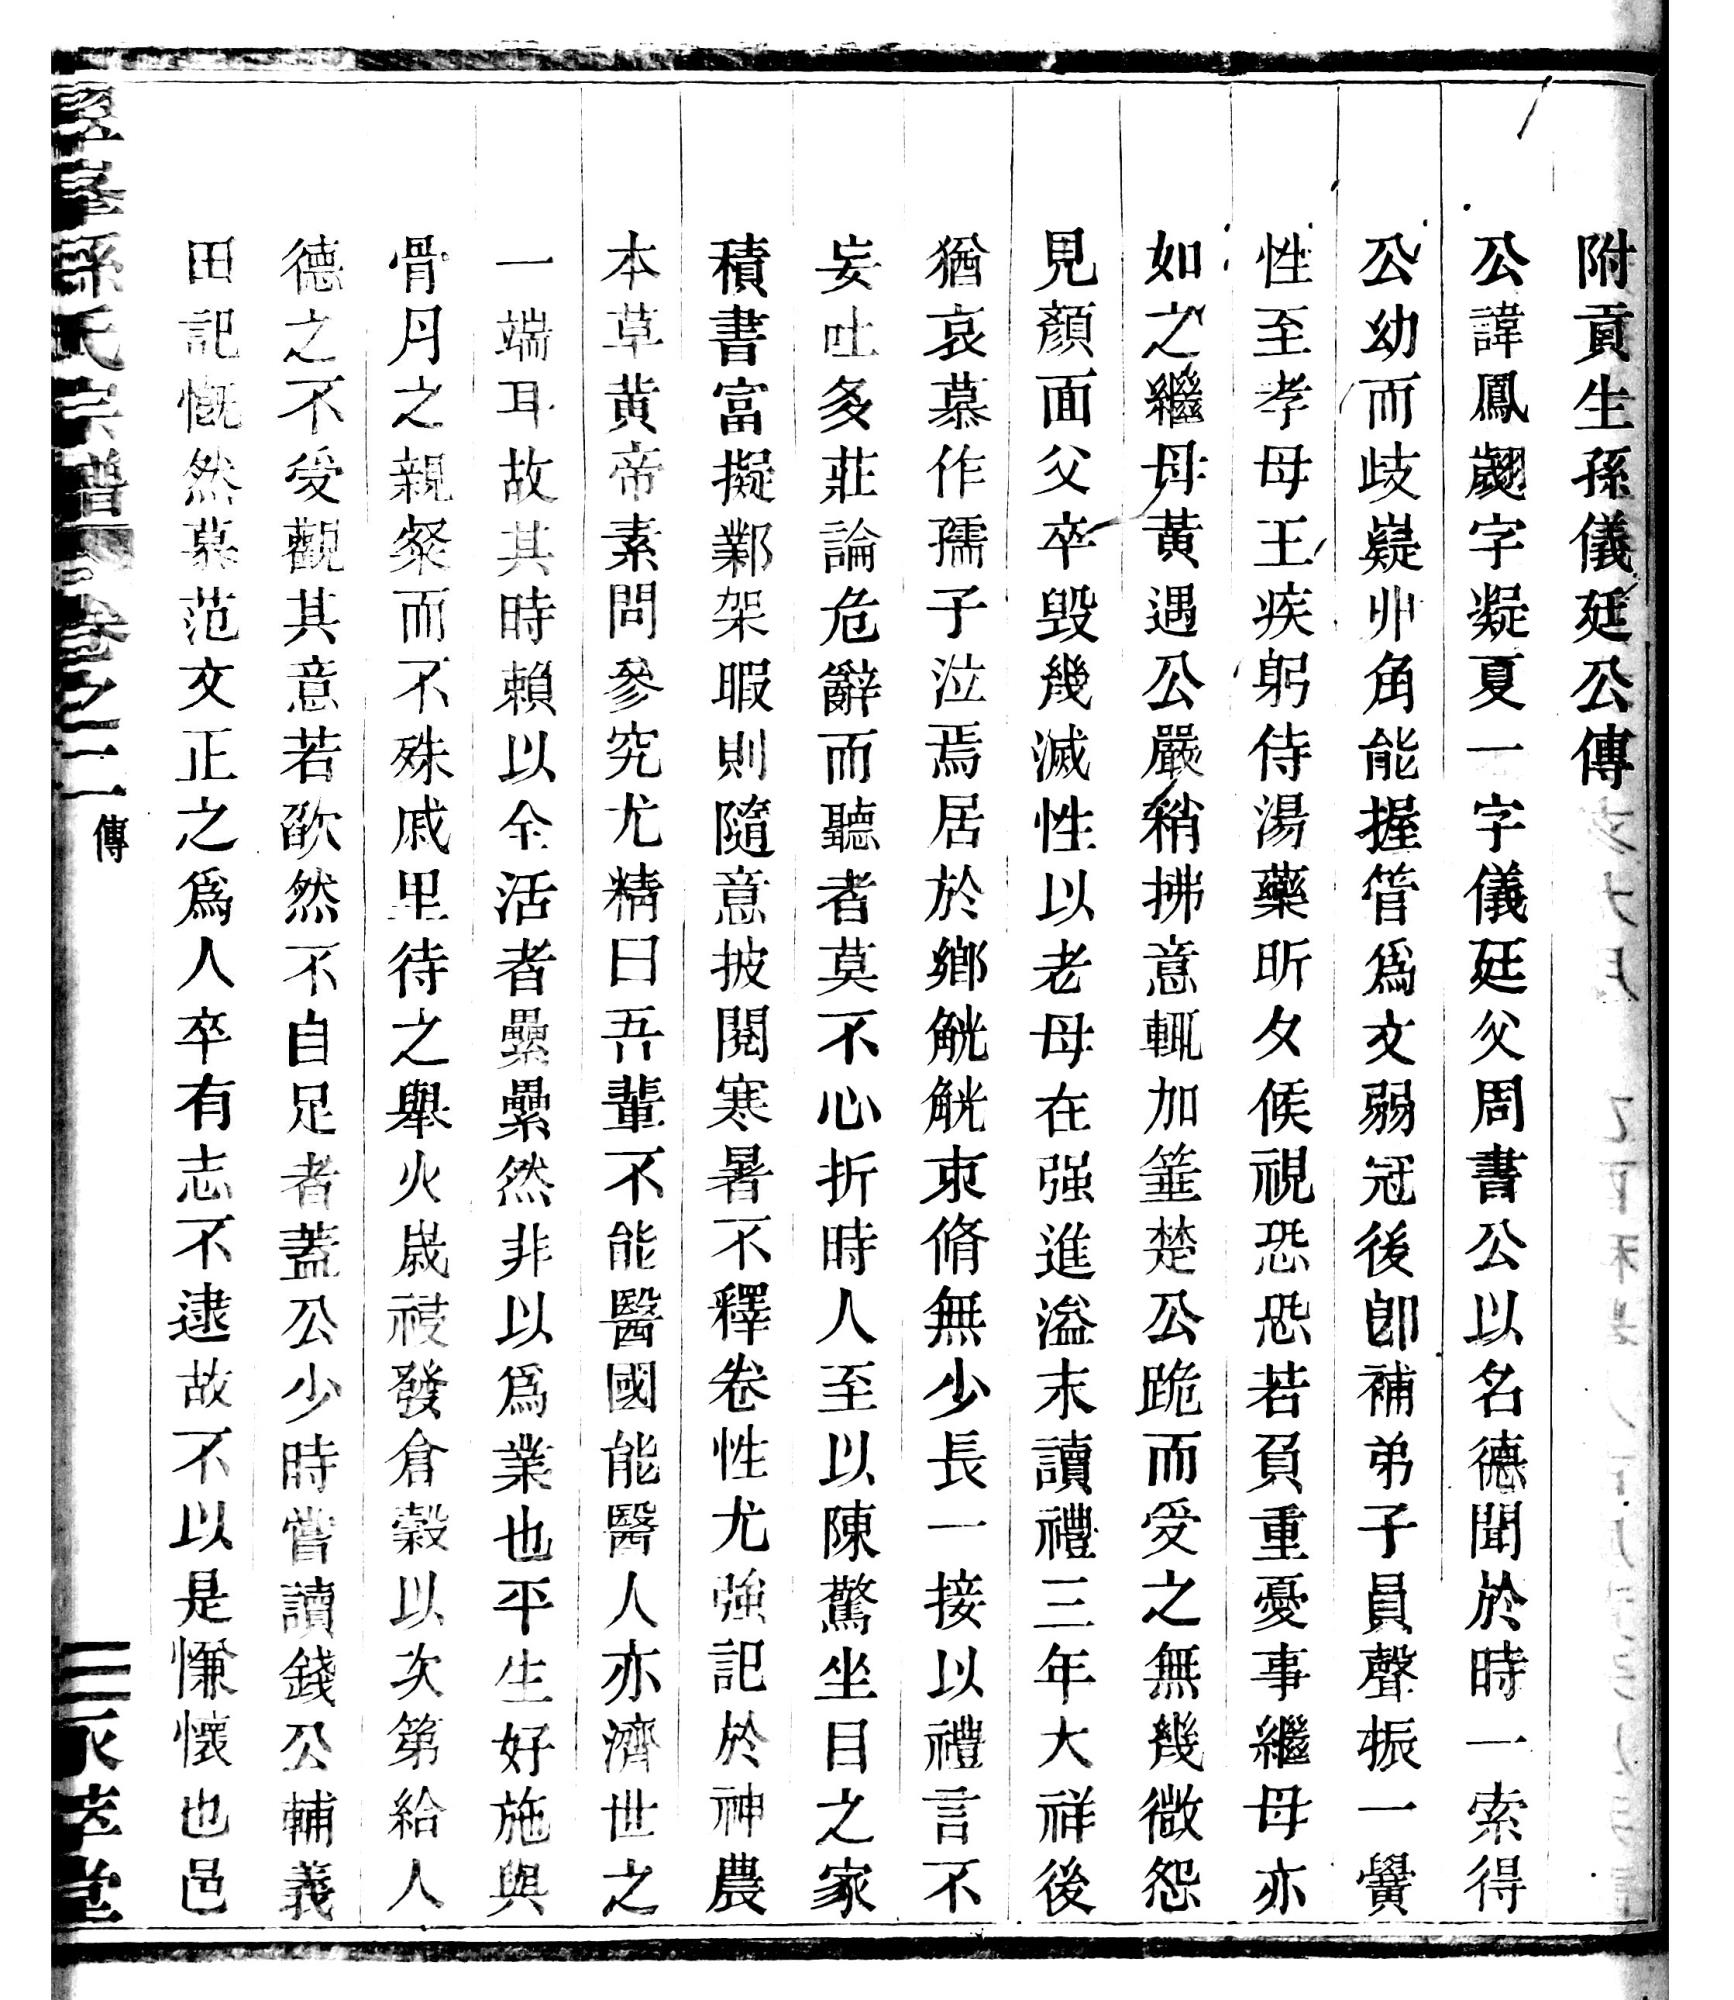 附貢生孫儀廷公傳
公諱鳳翽字凝夏一字儀廷父周書公以名德聞於時一索得
公幼而歧嶷丱角能握管爲文弱冠後卽補弟子員聲振一黌
性至孝母王疾躬侍湯藥昕夕候視恐恐若負重憂事繼母亦
如之繼母黃遇公嚴稍拂意輒加箠楚公跪而受之無幾微怨
見顏面父卒毀幾滅性以老母在强進溢末讀禮三年大祥後
猶哀慕作孺子泣焉居於鄉觥觥束脩無少長一接以禮言不
妄吐多莊論危辭而聽者莫不心折時人至以陳驚坐目之家
積書富擬鄴架暇則隨意披閱寒暑不釋卷性尤强記於神農
本草黃帝素問參究尤精曰吾輩不能醫國能醫人亦濟世之
一端耳故其時賴以全活者纍纍然非以爲業也平生好施與
骨月之親粲而不殊戚里待之舉火歲祲發倉穀以次第給人
德之不受觀其意若欿然不自足者蓋公少時嘗讀錢公輔義
田記慨然慕范文正之爲人卒有志不逮故不以是慊懷也邑
孫氏宗譜 卷之二 傳 三 永孝堂